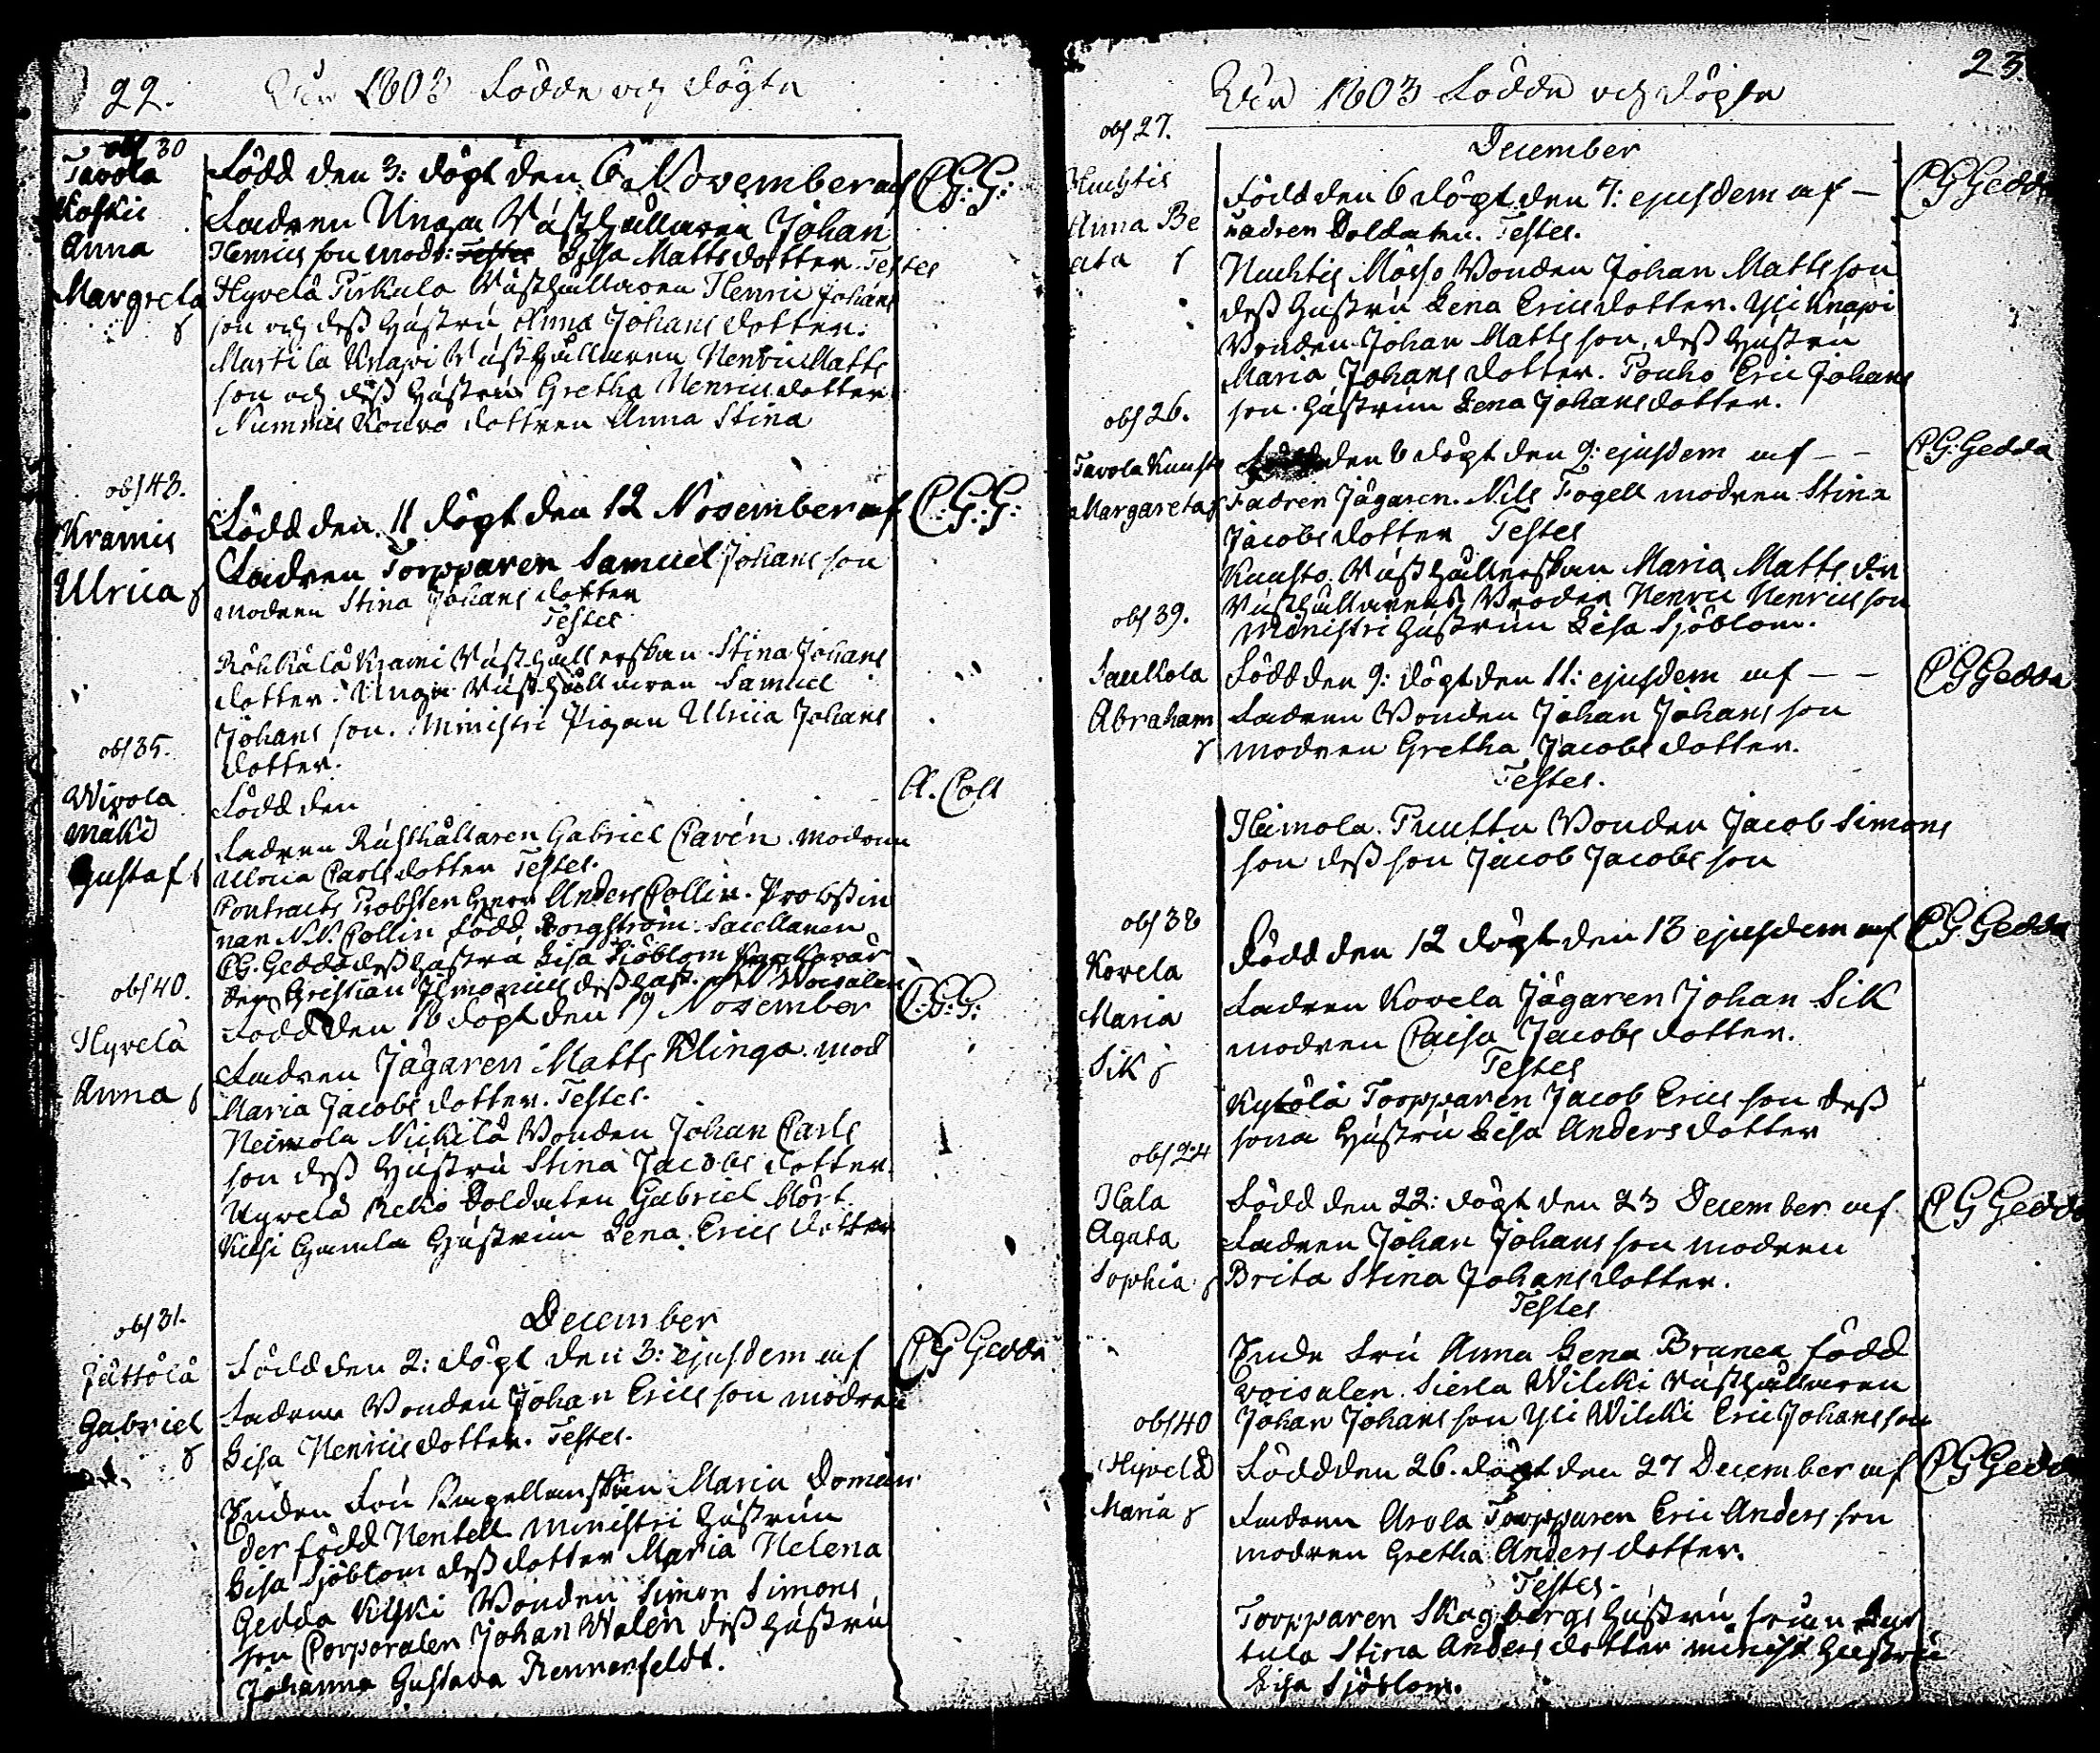 22.
Åhr 1803 Födde och döpte
obs 30
Tavola
Koskis
Anna
Margreta
Född den 3: döpt den 6 November af
C G: G:
Fadren Unga Rusthållaren Johan
Henrics son modr: Testes Lisa Mattsdotter Testes
Hyvelä Pirkula Rusthållaren Henric Johans
son och dess hustru Anna Johans dotter.
Martila Knapi Rusthållaren Henric Matts
son och dess hustru Gretha Henrics dotter
Nummis Kouvo dottren Anna Stina
obs 43.
Kramis
Ulrica
Född den 11 döpt den 12 November af
C: G: G:
Fadren Torpparen Samuel Johans son
modren Stina Johans dotter
Testes
Röhkälä Krami Rusthållerskan Stina Johans
dotter. Unga Rusthållaren Samuel
Johans son. Ministri Pigan Ulrica Johans
dotter.
obs 35.
Wivola
Mäki
Gustaf
Född den
A. Coll
Fadren Rusthållaren Gabriel Cavén modren
Ulrica Carls dotter Testes.
Contracts Probsten Herr Anders Collin. Probstin
nan N.N. Collin född Borgström. Sacellanen
C G. Gedda dess hustru Lisa Sjöblom
den Christian dess hust.
obs 40.
Hyvelä
Anna
Född den 18 döpt den 19 November
C: G: G:
Fadren Jägaren Matts Klinga. mod
Maria Jacobs dotter. Testes.
Heimola Nickilä Bonden Johan Carls
son dess Hustru Stina Jacobs dotter.
Hyvelä Reko Soldaten Gabriel Mört.
Kiesi Gamla Hustrun Lena Erics dotter
December
obs 31.
Jättölä
Gabriel
Född den 2: döpt den 3: ejusdem af
C G Gedda
Fadren Bonden Johan Erics son modren
Lisa Henrics dotter. Testes.
Enden Fru Kapellanskan Maria Doman
der född Hentell ministri hustrun
Lisa Sjöblom dess dotter Maria Helena
Gedda Bonden Simon Simons
son Corporalen Johan Walén dess hustru
Johanna Gustava Rennerfeldt.
23.
Åhr 1803 Födde och döpte
December
obs 27.
Huhtis
Anna Be
ata
Född den 6 döpt den 7: ejusdem af —
C G Gedda
Fadren Soldaten. Testes.
Huhtis Mässo Bonden Johan Matts son
dess hustru Lena Erics dotter. Yli Knapi
Bonden Johan Matts son, dess Hustru
Maria Johans dotter. Pouho Eric Johans
son hustrun Lena Johans dotter.
obs 26.
Tavola Kuusto
Margareta
Född den 6 döpt den 9: ejusdem af — —
C. G: Gedda
Fadren Jägaren. Nils Fogell modren Stina
Jacobs dotter Testes
Kuusto Rusthållerskan Maria Matts dr.
Rusthållarens Broder Henric Henrics son
Ministri hustrun Lisa Sjöblom.
obs 39.
Saukola
Abraham
Född den 9: döpt den 11: ejusdem af — —
C G Gedda
Fadren Bonden Johan Johans son
modren Gretha Jacobs dotter.
Testes.
Heimola. Puuttu Bonden Jacob Simons
son dess son Jacob Jacobs son
obs 38
Kovela
Maria
Sik
Född den 12 döpt den 13 ejusdem af
C G Gedda
Fadren Kovela Jägaren Johan Sik
modren Caisa Jacobs dotter.
Testes
Kytölä Torpparen Jacob Erics son dess
sona Hustru Lisa Anders dotter
obs 24
Hala
Agata
Sophia
Född den 22: döpt den 23 December af
C G Gedda
Fadren Johan Johans son modren
Brita Stina Johans dotter.
Testes
Fru Anna Lena Brunea född
Voisalen. Sierla Wilcki Rusthållaren
Johan Johans son Yli Wilcki Eric Johans son
obs 40
Hyvelä
Maria
Född den 26. döpt den 27 December af
C G Gedda
Fadren Arola Torpparen Eric Anders son
modren Gretha Anders dotter.
Testes.
Torpparen Skogbergs hustru
tula Stina Anders dotter minist Hustru
Lisa Sjöblom.